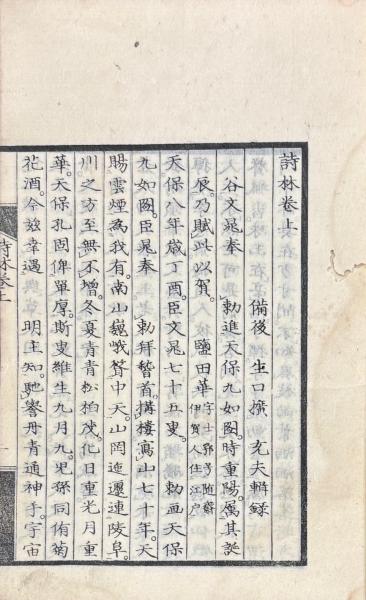 詩林卷上
備後 生口撰 充夫輯錄
谷文晁奉 勅進天保九如圖。時重陽。屬其誕
辰乃賦此以賀。鹽田華 字士鄂号随齋 伊賀人住江户
天保八年歳丁酉。臣文晁七十五叟。 勅畫天保
九如圖。臣晁奉 勅拜䭫首。搆樓寫山七十年。天
賜雲煙為我有。南山巍峨聳中天。山岡迤邐連陵阜。
川之方至無不增。冬夏青青松柏茂。化日重光月重
華。天保孔固俾單厚。斯叟維生九月九。児孫同侑菊
花酒。今玆幸遇 明主知。馳譽丹青通神手。宇宙
詩林卷上
一